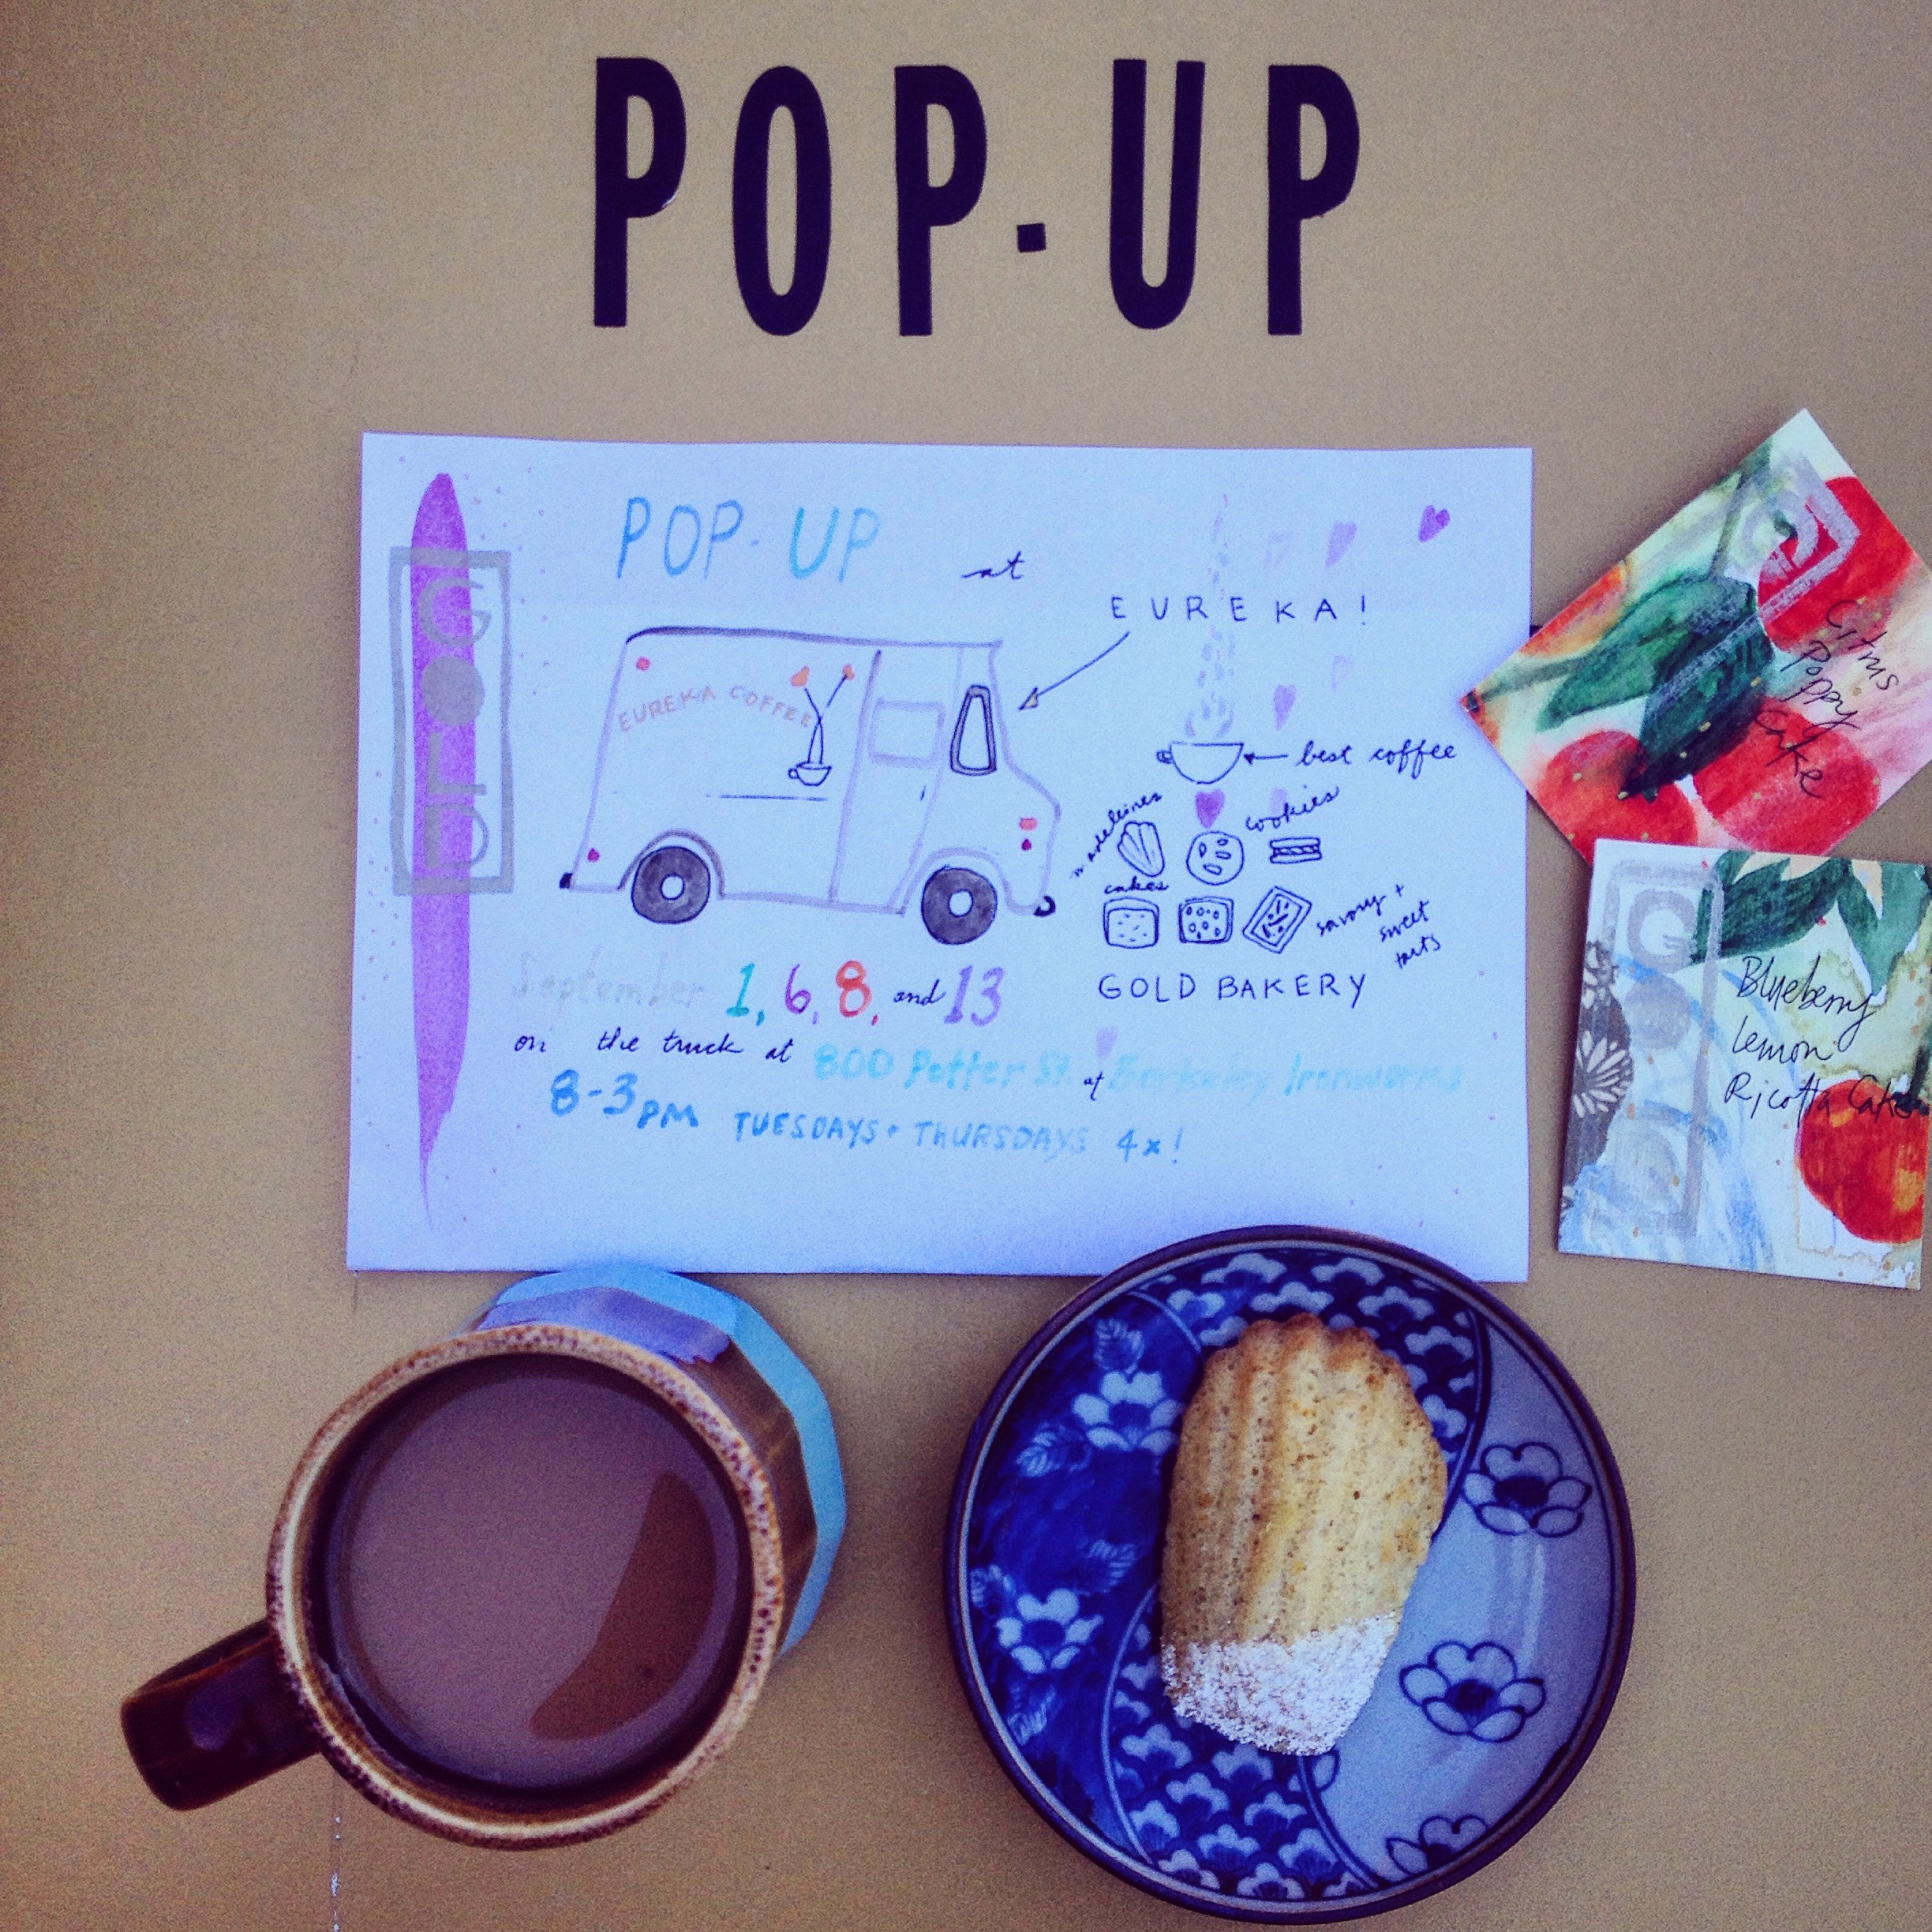 POP-UP
GOLD
POP-UP
at
EUREKA!
EUREKA COFFEE
best coffee
madeleines
cookies
cakes
savory +
sweet
tarts
GOLD BAKERY
September 1, 6, 8, and 13
on the truck at 800 Potter St. at Berkeley Ironworks
8-3pm TUESDAYS + THURSDAYS 4x!
Citrus
Poppy
Cake
Blueberry
Lemon
Ricotta Cake